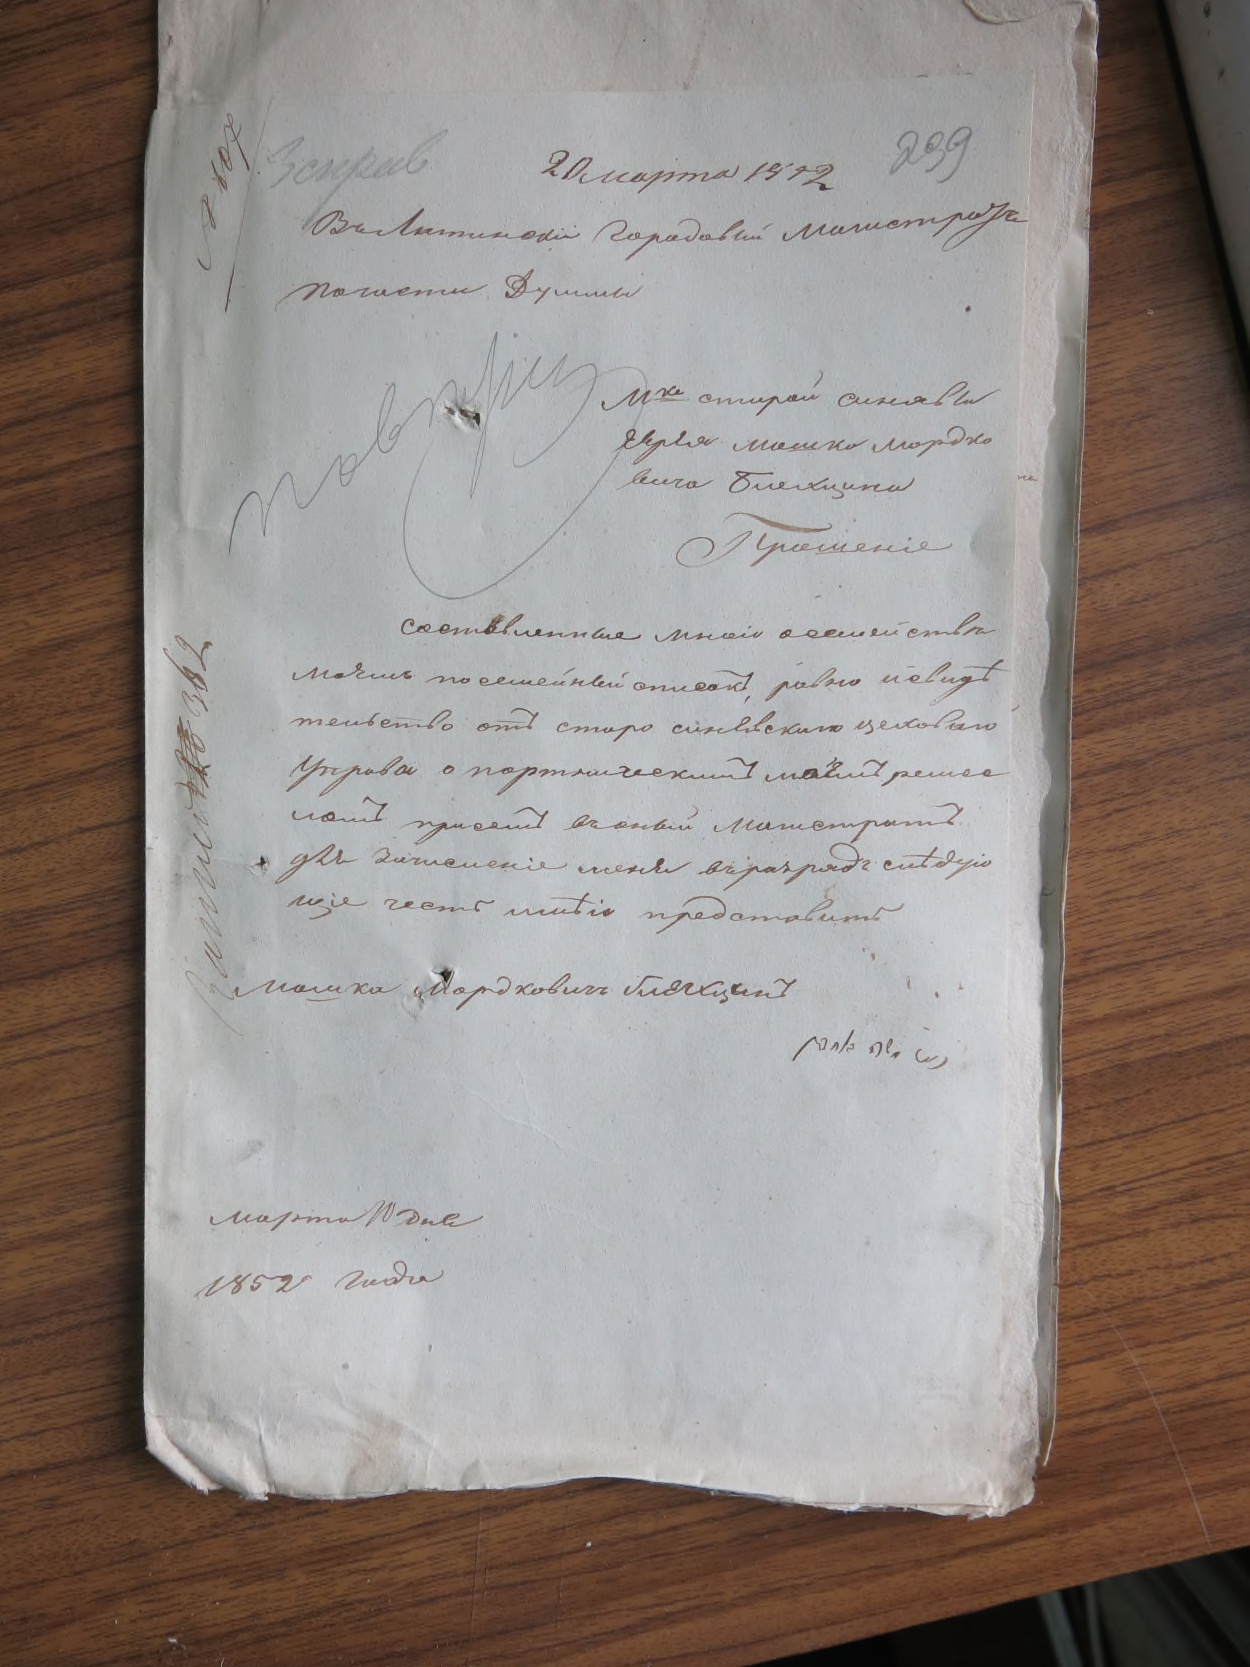 239
20 марта 1852
Въ Литинскій Городовый Магистратъ
почасти Думы
Мка старой синявы
Еврея Мошка Мордко
вича Блехцина
Прошеніе
Составленные мною осемействѣ
моемъ посемейный списокъ, равно исвидѣ
тельство отъ старо синявскаго цеховаго
Управы о портническимъ моимъ ремес
ломъ присемъ въ оный Магистратъ
для Зачисленіе меня въ разрядъ слѣдую
щіе честь имѣю представить
Мошка Мордковичъ Блехцинъ
марта 10 дня
1852 года